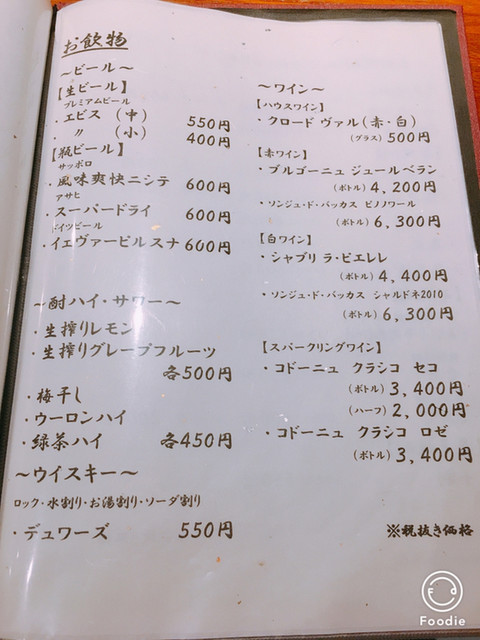 お飲物
～ビール～
【生ビール】
プレミアムビール
・エビス（中） 550円
〃（小） 400円
【瓶ビール】
サッポロ
・風味爽快ニシテ 600円
アサヒ
・スーパードライ 600円
ドイツビール
・イエヴァーピルスナ 600円
～酎ハイ・サワー～
・生搾りレモン
・生搾りグレープフルーツ
各500円
・梅干し
・ウーロンハイ
・緑茶ハイ 各450円
～ウイスキー～
ロック・水割り・お湯割り・ソーダ割り
・デュワーズ 550円
～ワイン～
【ハウスワイン】
・クロード ヴァル（赤・白）
（グラス）500円
【赤ワイン】
・ブルゴーニュ ジュールベラン
（ボトル）4,200円
・ソンジュ・ド・バッカス ピノノワール
（ボトル）6,300円
【白ワイン】
・シャブリ ラ・ピエレレ
（ボトル）4,400円
・ソンジュ・ド・バッカス シャルドネ2010
（ボトル）6,300円
【スパークリングワイン】
・コドーニュ クラシコ セコ
（ボトル）3,400円
（ハーフ）2,000円
・コドーニュ クラシコ ロゼ
（ボトル）3,400円
※税抜き価格
Foodie